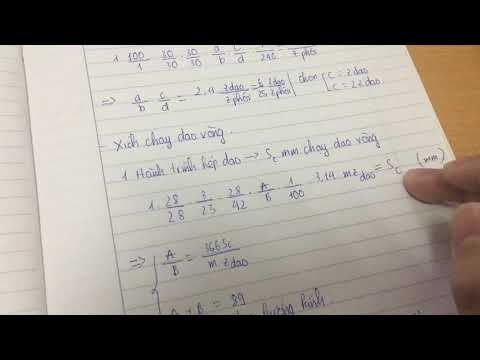 1 \frac{100}{1} \cdot \frac{30}{30} \cdot \frac{30}{30} \cdot \frac{a}{b} \cdot \frac{c}{d} \cdot \frac{1}{240} =
=> \frac{a}{b} \cdot \frac{c}{d} = 2.4 \frac{z dao}{z phôi} = \frac{z dao}{25 z phôi} | chọn { c = z dao
c = 2 z dao
- Xích chạy dao vòng.
1 Hành trình hộp dao → Sc mm chạy dao vòng
1. \frac{28}{28} \cdot \frac{3}{23} \cdot \frac{28}{42} \cdot \frac{A}{B} \cdot \frac{1}{100} \cdot 3,14 m z dao = Sc (mm)
=> { \frac{A}{B} = \frac{366 Sc}{m z dao}
A + B = 89